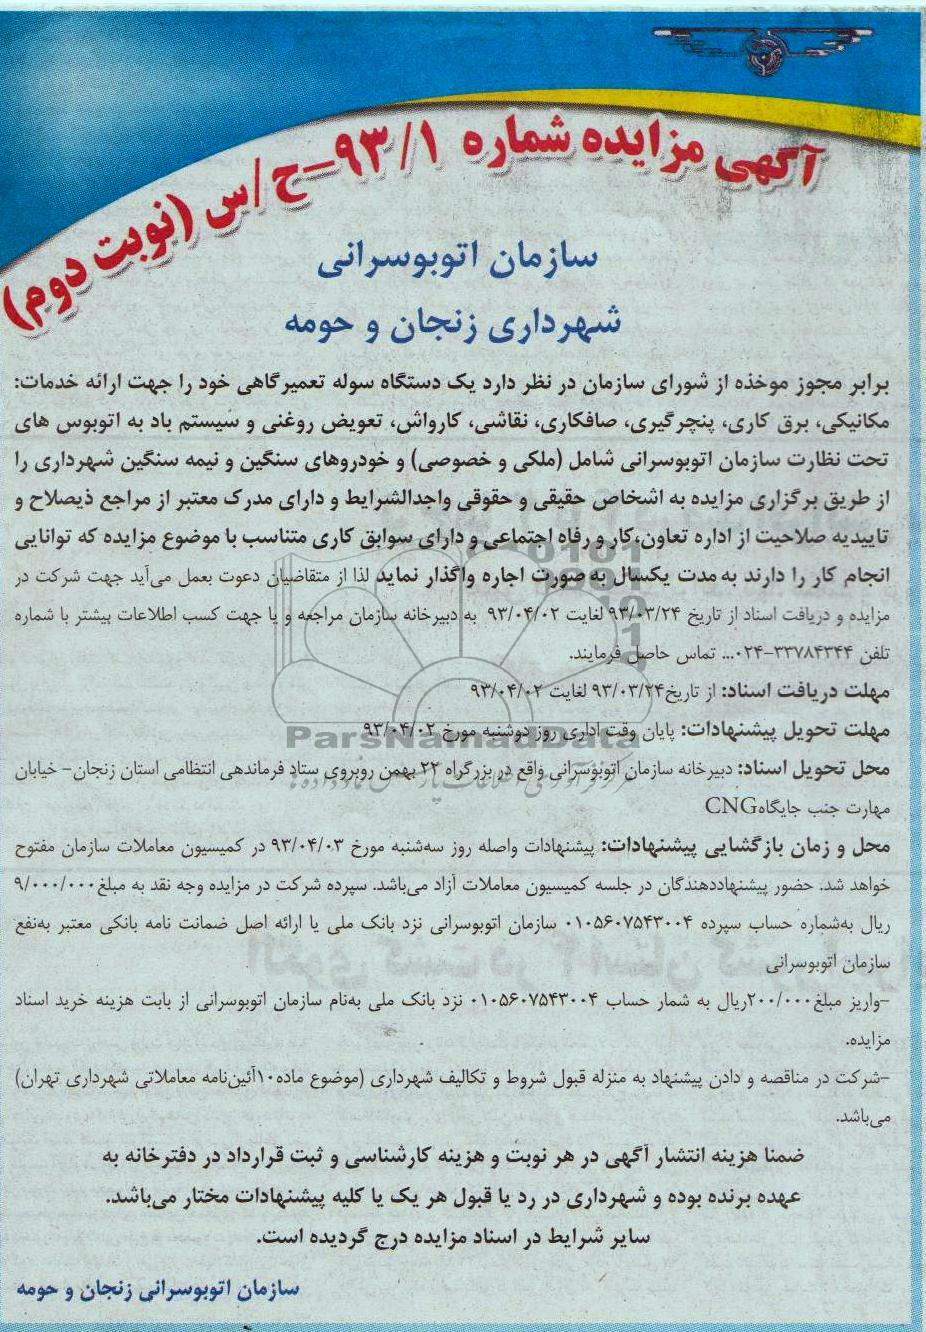 آگهی مزایده شماره ۹۳/۱-ح/س (نوبت دوم)
سازمان اتوبوسرانی
شهرداری زنجان و حومه
برابر مجوز موخذه از شورای سازمان در نظر دارد یک دستگاه سوله تعمیرگاهی خود را جهت ارائه خدمات:
مکانیکی، برق کاری، پنچرگیری، صافکاری، نقاشی، کارواش، تعویض روغنی و سیستم باد به اتوبوس های
تحت نظارت سازمان اتوبوسرانی شامل (ملکی و خصوصی) و خودروهای سنگین و نیمه سنگین شهرداری را
از طریق برگزاری مزایده به اشخاص حقیقی و حقوقی واجدالشرایط و دارای مدرک معتبر از مراجع ذیصلاح و
تاییدیه صلاحیت از اداره تعاون،کار و رفاه اجتماعی و دارای سوابق کاری متناسب با موضوع مزایده که توانایی
انجام کار را دارند به مدت یکسال به صورت اجاره واگذار نماید لذا از متقاضیان دعوت بعمل می‌آید جهت شرکت در
مزایده و دریافت اسناد از تاریخ ۹۳/۰۳/۲۴ لغایت ۹۳/۰۴/۰۲ به دبیرخانه سازمان مراجعه و یا جهت کسب اطلاعات بیشتر با شماره
تلفن ۳۳۷۸۴۳۴۴-۰۲۴... تماس حاصل فرمایند.
مهلت دریافت اسناد: از تاریخ۹۳/۰۳/۲۴ لغایت ۹۳/۰۴/۰۲
مهلت تحویل پیشنهادات: پایان وقت اداری روز دوشنبه مورخ ۹۳/۰۴/۰۲
ParsNamadData
محل تحویل اسناد: دبیرخانه سازمان اتوبوسرانی واقع در بزرگراه ۲۲ بهمن روبروی ستاد فرماندهی انتظامی استان زنجان- خیابان
مهارت جنب جایگاهCNG
محل و زمان بازگشایی پیشنهادات: پیشنهادات واصله روز سه‌شنبه مورخ ۹۳/۰۴/۰۳ در کمیسیون معاملات سازمان مفتوح
خواهد شد. حضور پیشنهاددهندگان در جلسه کمیسیون معاملات آزاد می‌باشد. سپرده شرکت در مزایده وجه نقد به مبلغ۹/۰۰۰/۰۰۰
ریال به‌شماره حساب سپرده ۰۱۰۵۶۰۷۵۴۳۰۰۴ سازمان اتوبوسرانی نزد بانک ملی یا ارائه اصل ضمانت نامه بانکی معتبر به‌نفع
سازمان اتوبوسرانی
-واریز مبلغ۲۰۰/۰۰۰ریال به شمار حساب ۰۱۰۵۶۰۷۵۴۳۰۰۴ نزد بانک ملی به‌نام سازمان اتوبوسرانی از بابت هزینه خرید اسناد
مزایده.
-شرکت در مناقصه و دادن پیشنهاد به منزله قبول شروط و تکالیف شهرداری (موضوع ماده۱۰آئین‌نامه معاملاتی شهرداری تهران)
می‌باشد.
ضمنا هزینه انتشار آگهی در هر نوبت و هزینه کارشناسی و ثبت قرارداد در دفترخانه به
عهده برنده بوده و شهرداری در رد یا قبول هر یک یا کلیه پیشنهادات مختار می‌باشد.
سایر شرایط در اسناد مزایده درج گردیده است.
سازمان اتوبوسرانی زنجان و حومه